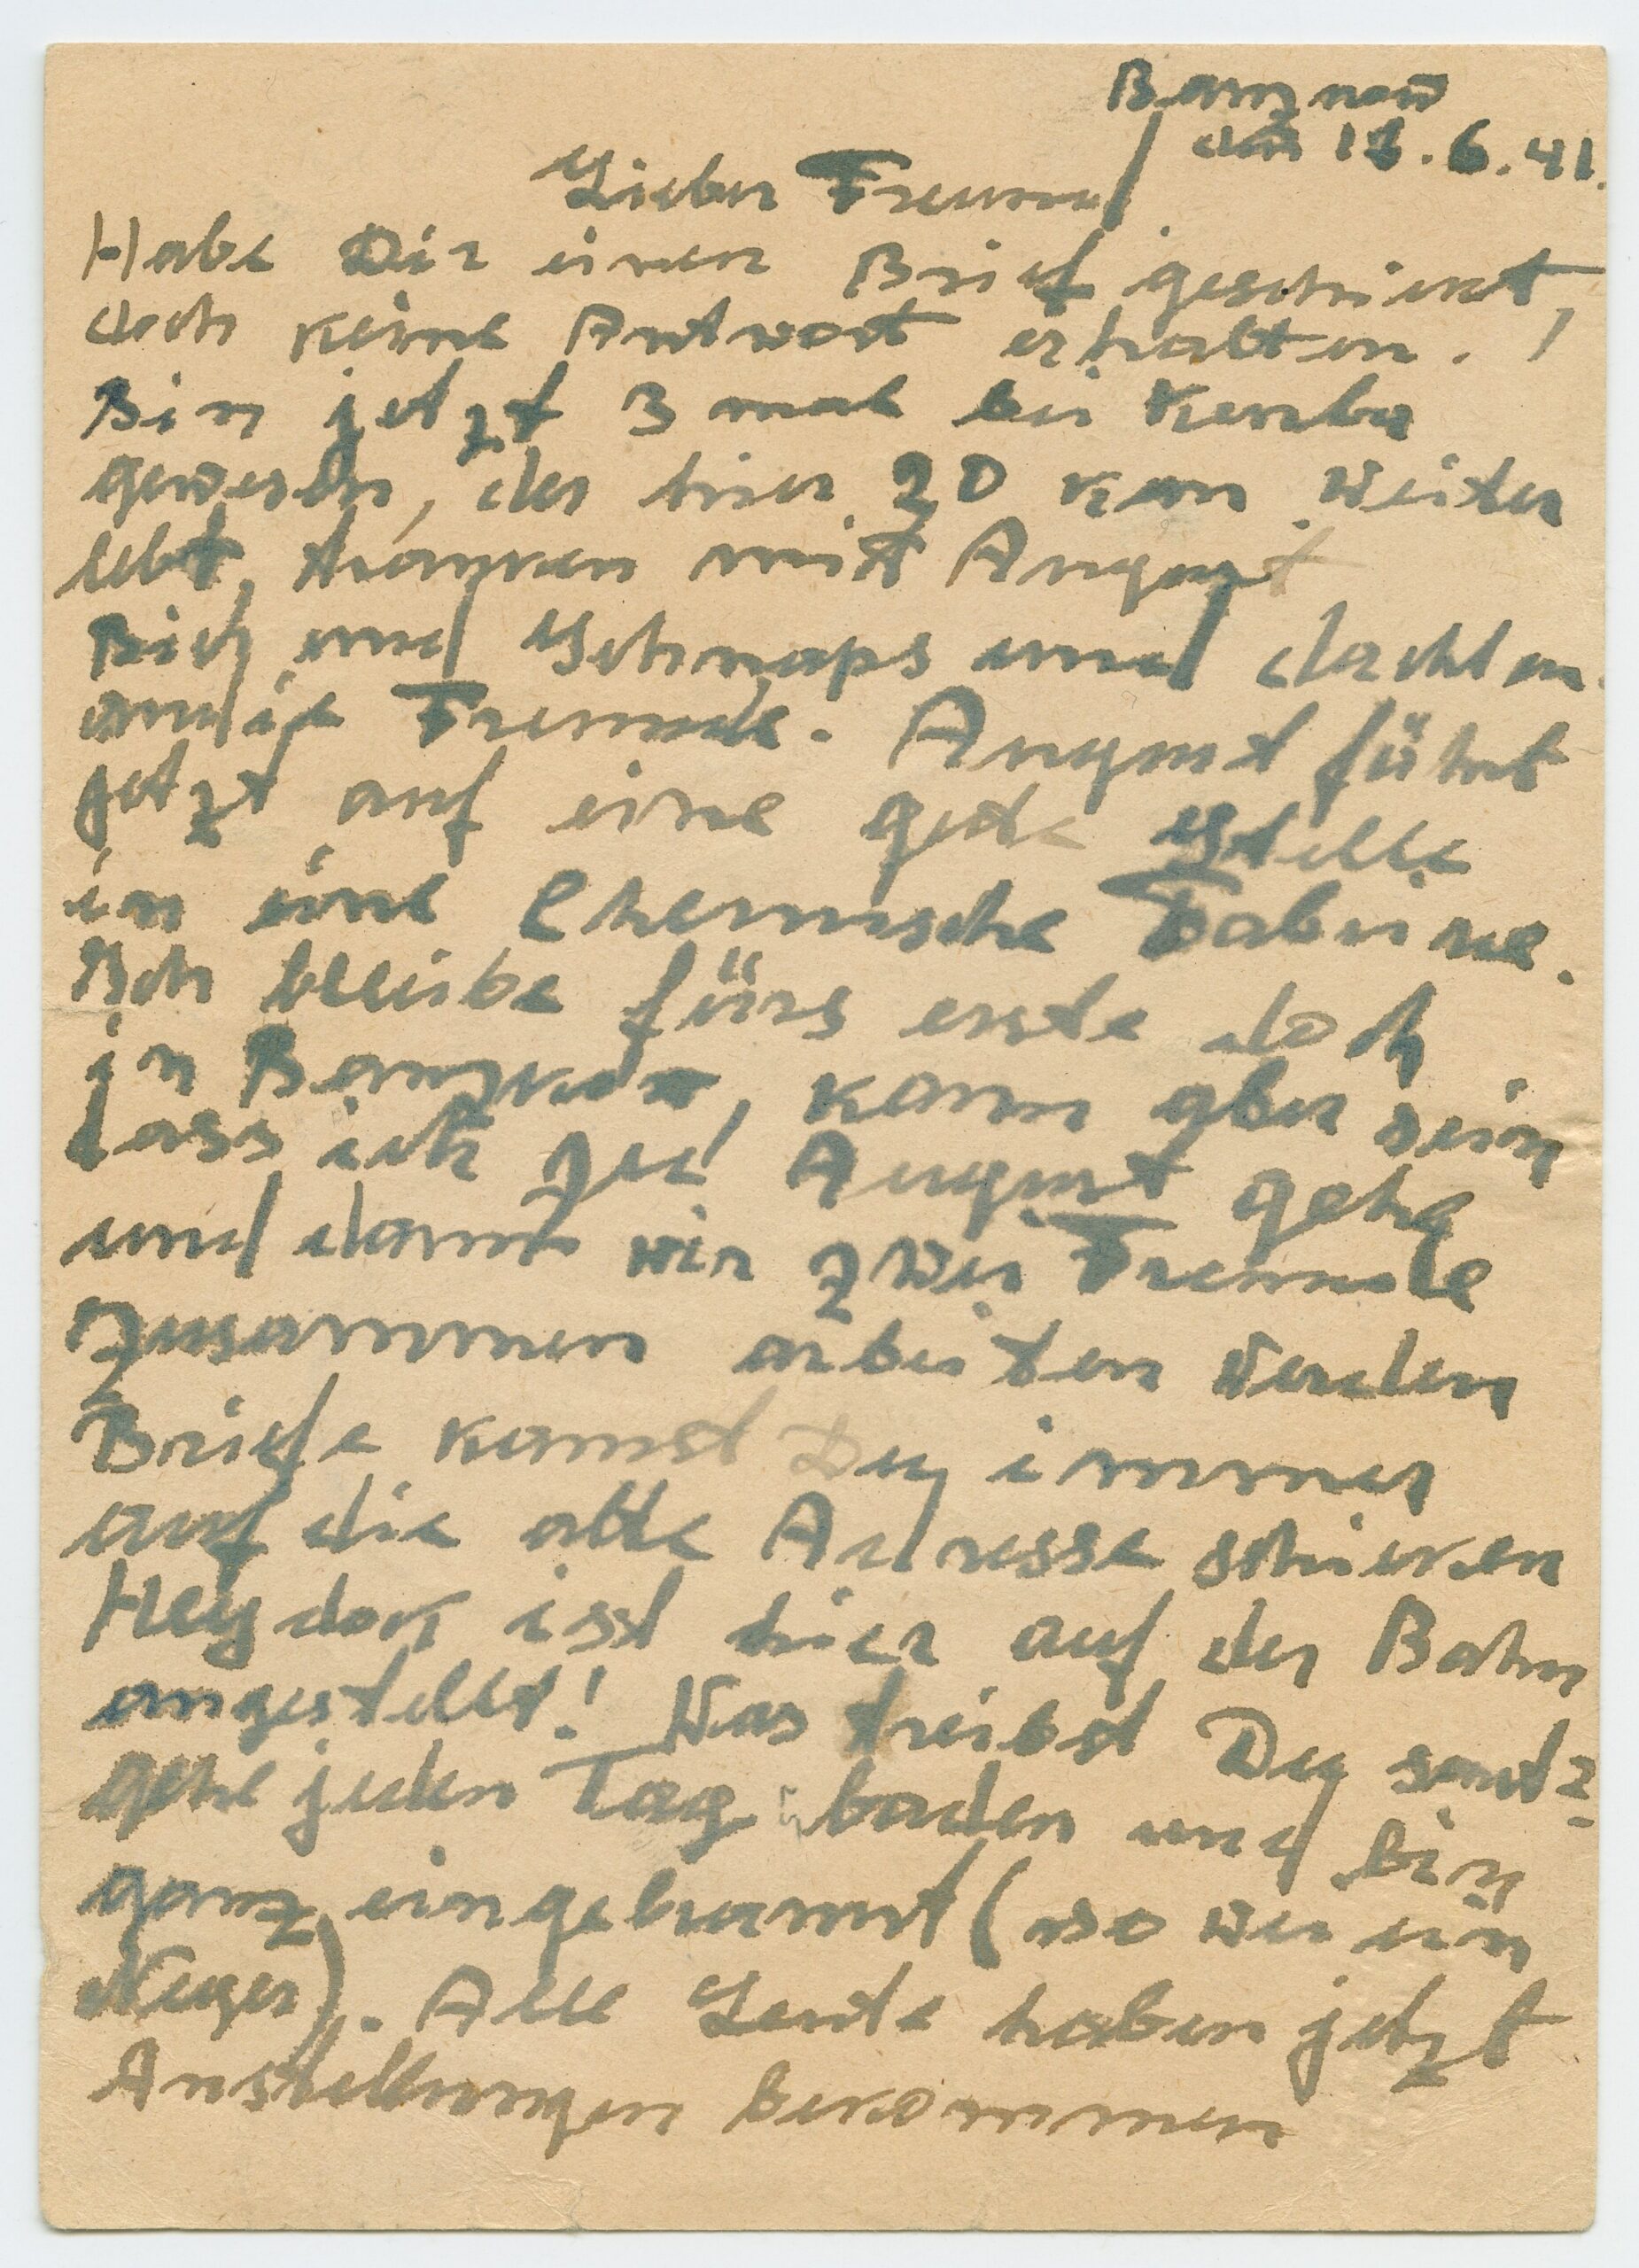 den 12.6.41.
Lieber Freund
Habe Dir einen Brief geschickt,
doch keine Antwort erhalten.
Bin jetzt 3 mal bei
gewesen, der hier 20 km weiter
lebt, tranken mit August
Bier und Schnaps und dachten
an die Freunde. August fährt
jetzt auf eine gute Stelle
in eine Chemische Fabrike.
Ich bleibe fürs erste doch
in Banzkow, kann aber sein
dass ich zu August gehe
und dann wir zwei Freunde
zusammen arbeiten werden
Briefe kannst Du immer
auf die alte Adresse schicken
Heydok isst hier auf der Bahn
angestellt! Was treibst Du sonst?
gehe jeden Tag baden und bin
ganz eingebrannt (so wie ein
Neger). Alle Leute haben jetzt
Anstellungen bekommen